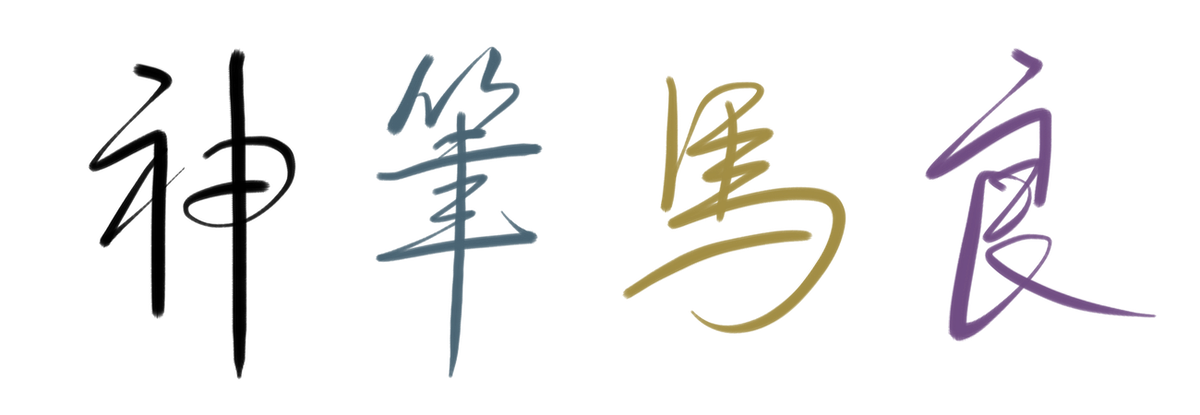 神筆馬良